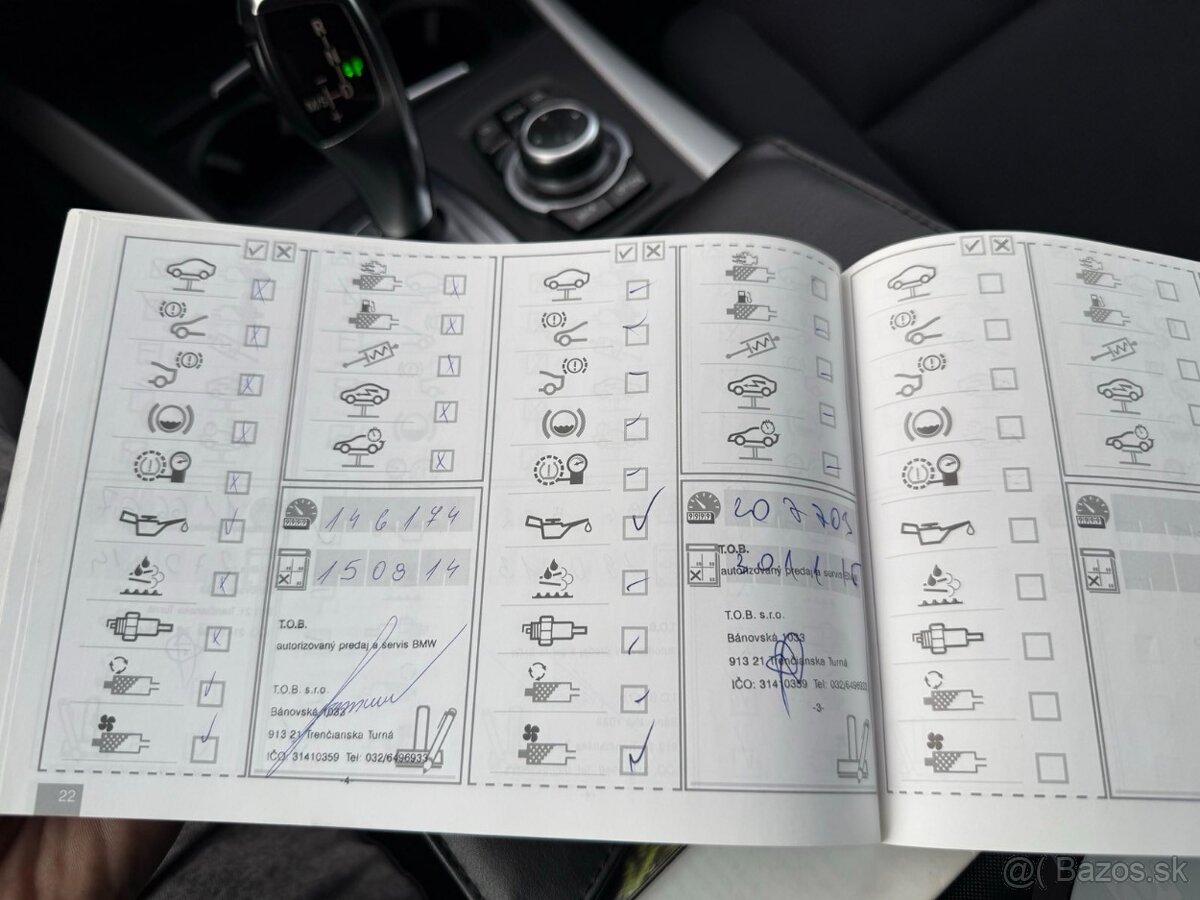 146174
150814
T.O.B.
autorizovaný predaj a servis BMW
T.O.B. s.r.o.
Bánovská 1033
913 21 Trenčianska Turná
IČO: 31410359 Tel: 032/6496933
-4-
22
207703
T.O.B.
autorizovaný predaj a servis
T.O.B. s.r.o.
Bánovská 1033
913 21 Trenčianska Turná
IČO: 31410359 Tel: 032/6496933
-3-
@( Bazos.sk